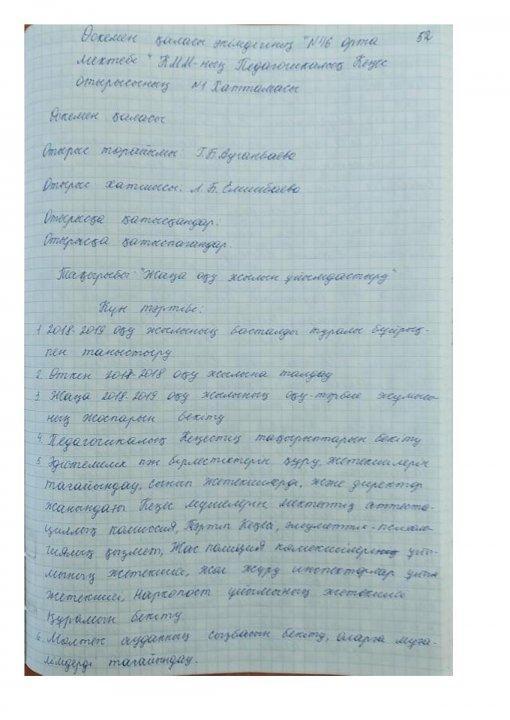 52
Өскемен қаласы әкімдігінің "№46 орта
мектебі" КММ-ның Педагогикалық Кеңес
отырысының №1 Хаттамасы
Өскемен қаласы
Отырыс төрайымы: Г.Б.
Отырыс хатшысы: Л.Б.
Отырысқа қатысқандар:
Отырысқа қатыспағандар
Тақырыбы: "Жаңа оқу жылын ұйымдастыру"
Күн тәртібі:
1. 2018-2019 оқу жылының басталды туралы бұйрық-
пен таныстыру
2. Өткен 2017-2018 оқу жылына талдау
3. Жаңа 2018-2019 оқу жылының оқу-тәрбие жұмысы-
ның жоспарын бекіту
4. Педагогикалық Кеңестің тақырыптарын бекіту
5. Әдістемелік пән бірлестіктерін құру, жетекшілерін
тағайындау, сынып жетекшілерді, және директор
жанындағы Кеңес мүшелерін мектептің аттеста-
циялық комиссия, Тәртіп Кеңесі, әлеуметтік-психоло-
гиялық қызмет, Жас полиция көмекшілері ұйы-
мының жетекшісі, жол жүру инспекторлар ұйым
жетекшісі, Наркопост ұйымының жетекшісі
құрамын бекіту
6. Мөлтек ауданның сызбасын бекіту, оларға мұға-
лімдерді тағайындау.